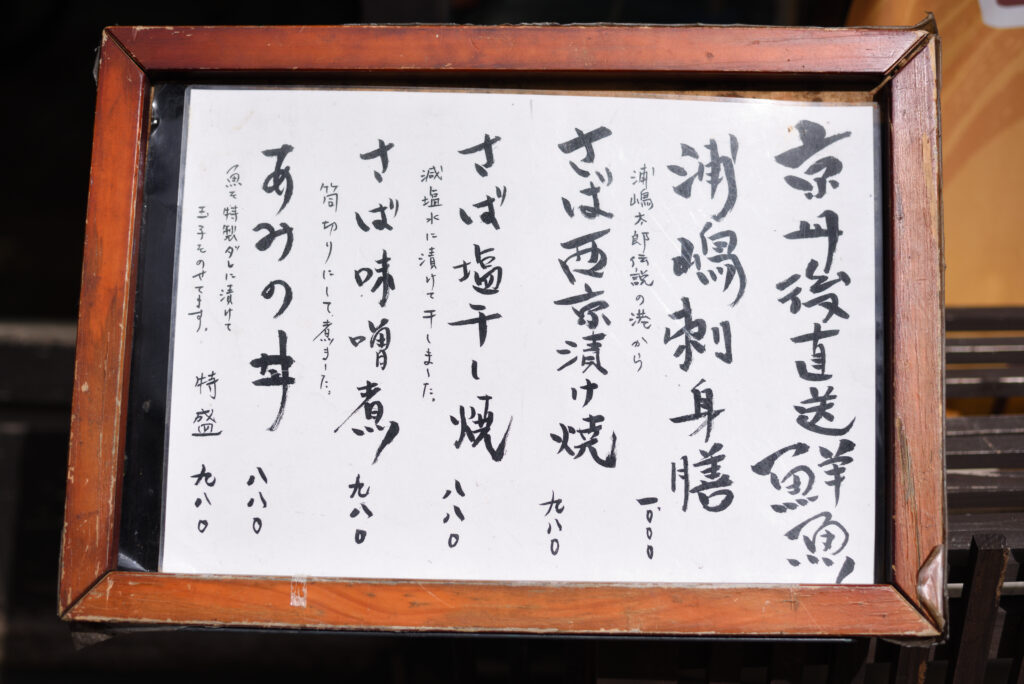 京丹後直送鮮魚
浦嶋刺身膳
浦嶋太郎伝説の港から
一、〇〇〇
さば西京漬け焼
九八〇
さば塩干し焼
減塩水に漬けて干しました。
八八〇
さば味噌煮
筒切りにして煮ました。
九八〇
あみの丼
八八〇
魚を特製ダレに漬けて
玉子をのせてます。
特盛
九八〇